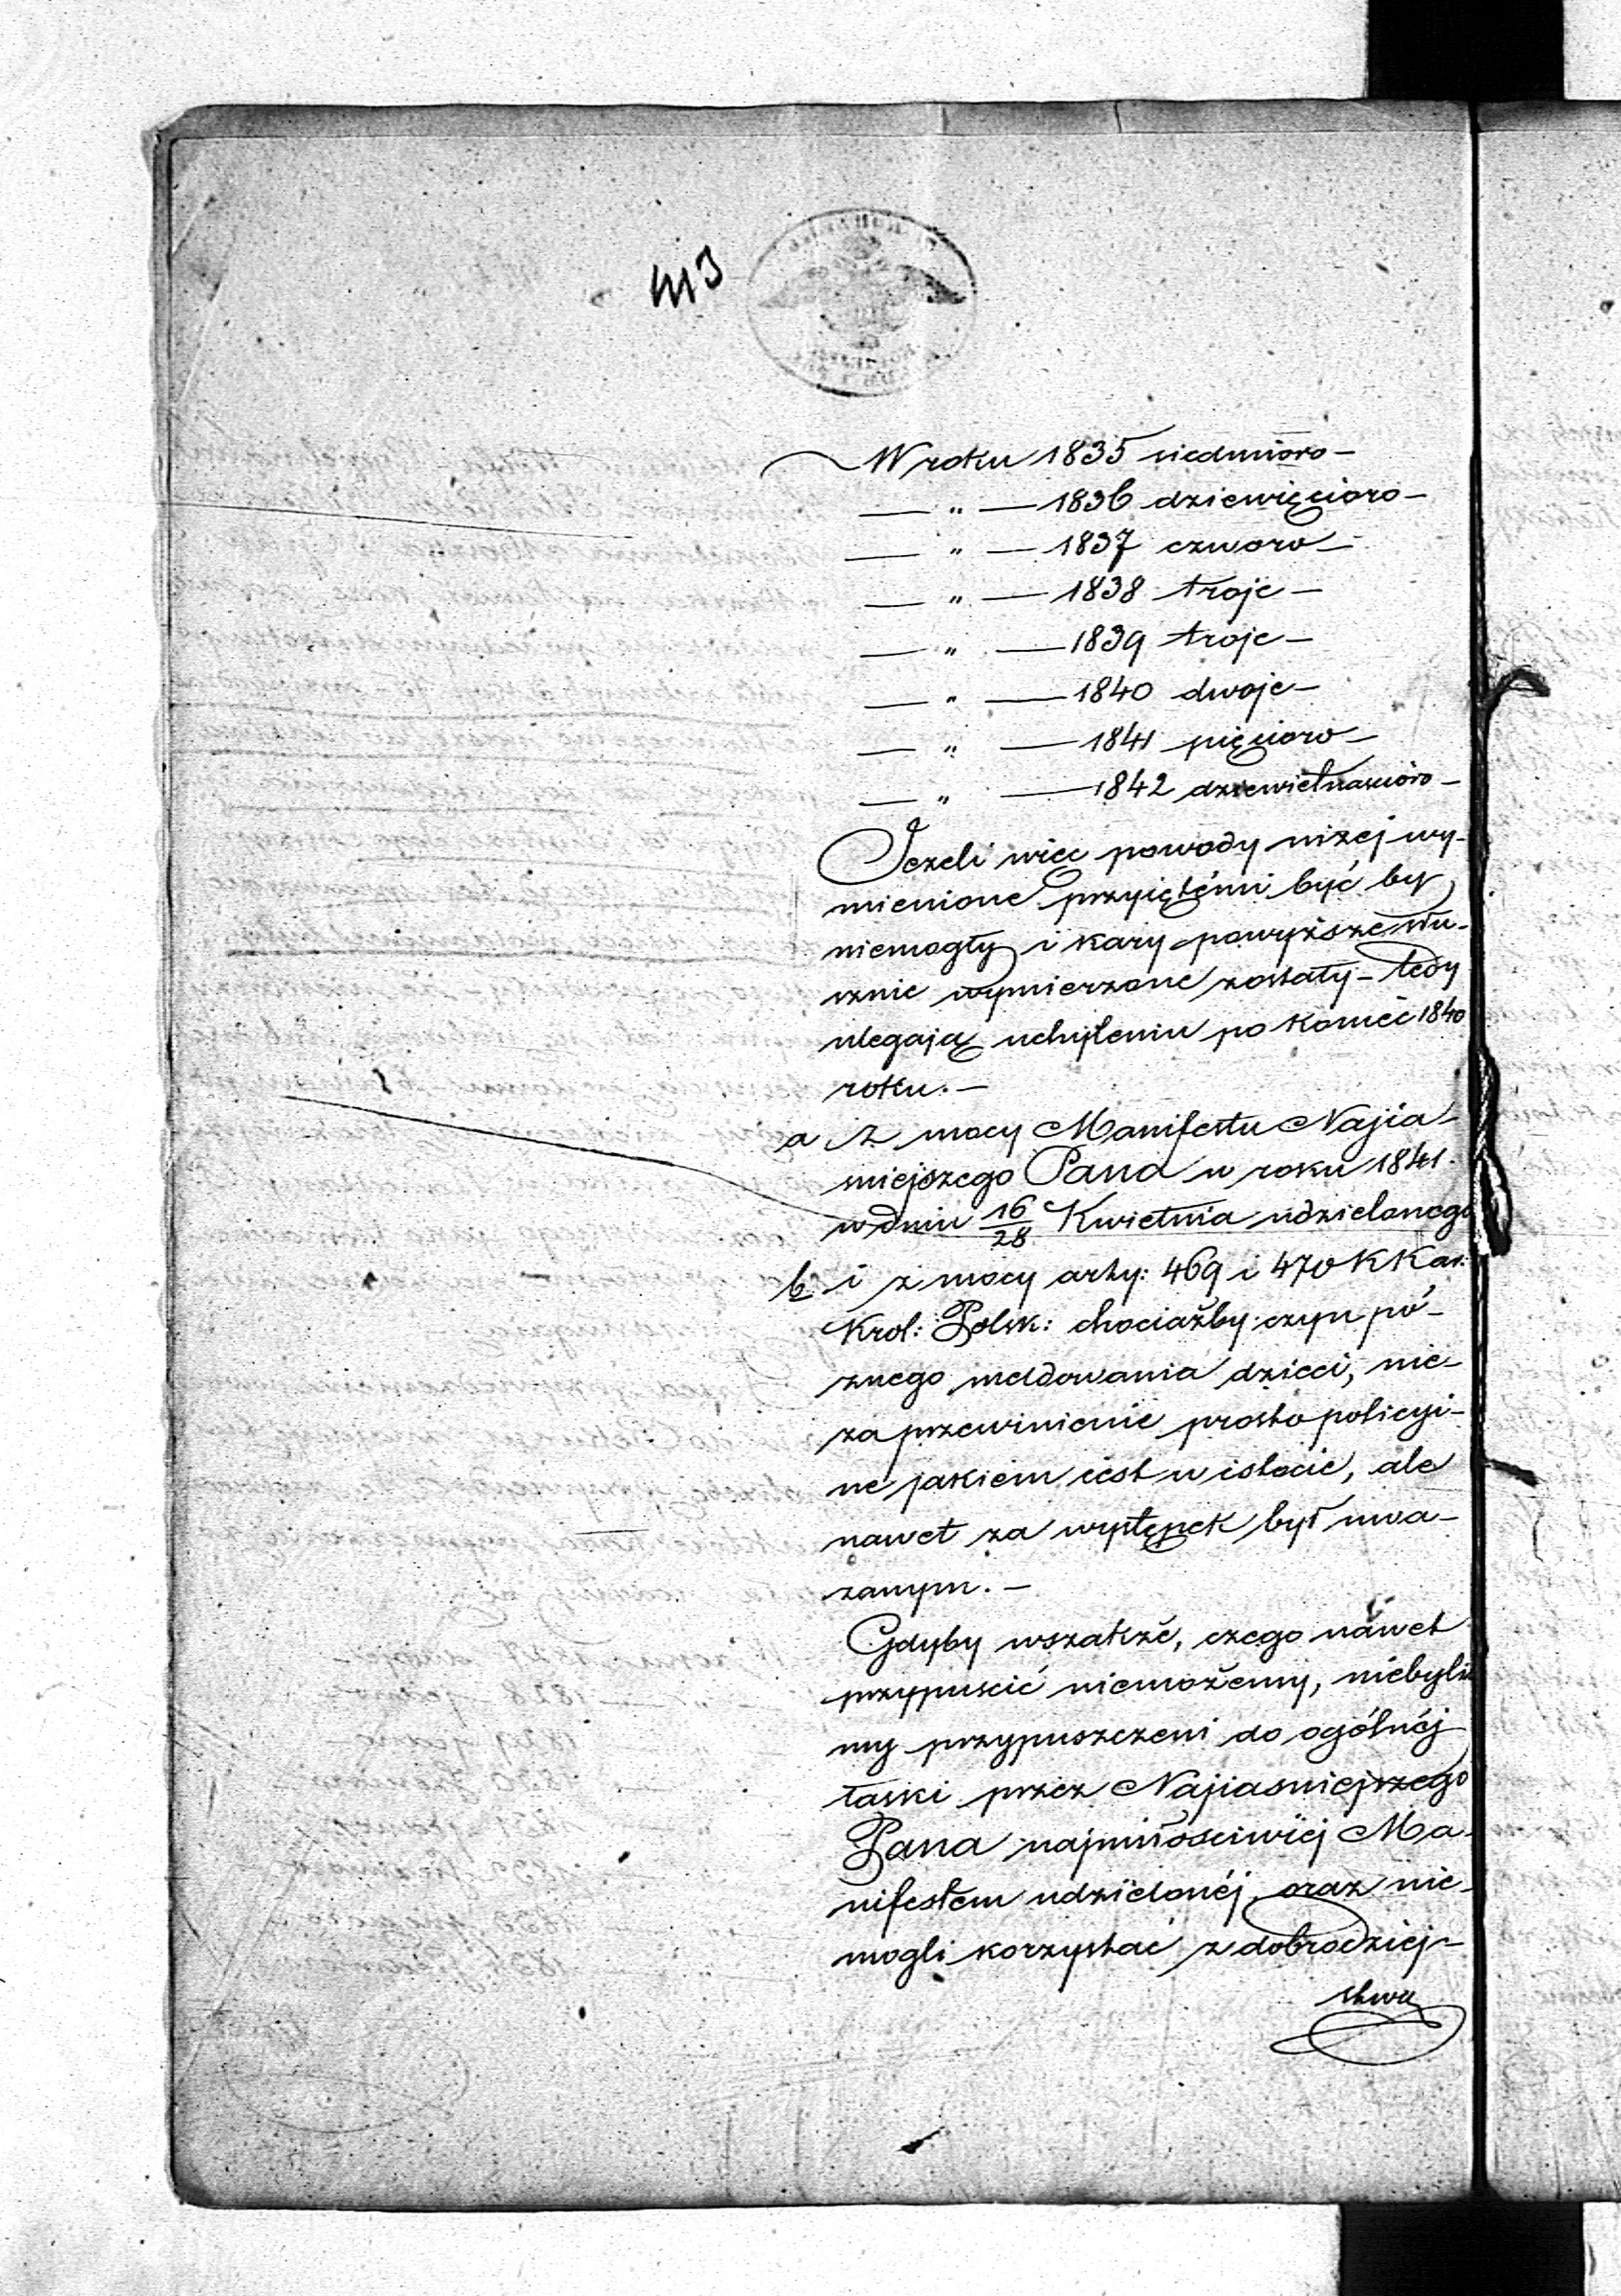 413
W roku 1835 siedmioro —
— „ — 1836 dziewięcioro —
— „ — 1837 czworo —
— „ — 1838 troje —
— „ — 1839 troje —
— „ — 1840 dwoje —
— „ — 1841 pięcioro —
— „ — 1842 dziewietnascioro —
Jezeli wiec powody nizej wy-
mienione przyiętémi być by
niemogły i kary powyższe słu-
sznie wymierzone zostały — tedy
ulegają uchyleniu po koniec 1840
roku. —
a z mocy Manifestu Najia-
śniejszego Pana w roku 1841.
w dniu 16/28 Kwietnia udzielonego
b. i z mocy arty: 469 i 470 K Kar:
Krol: Polsk: chociażby czyn pó-
znego meldowania dzieci, nie
za przewinienie prosto policyi-
ne jakiem iest w istocie, ale
nawet za występek był uwa-
żanym. —
Gdyby wszakże, czego nawet
przypuscić niemożemy, niebyli
my przypuszczeni do ogólnéj
łaski przez Najiasniejszego
Pana najmiłościwiéj Ma-
nifestem udzielonéj, oraz nie
mogli korzystać z dobrodziej-
stwa